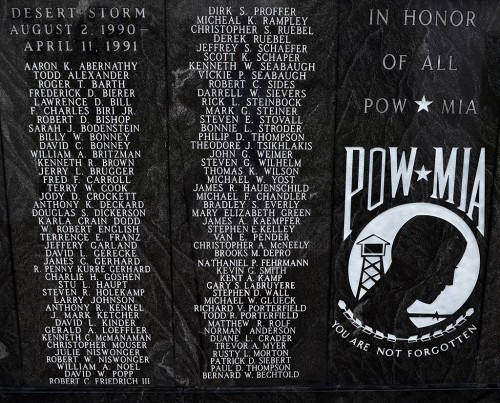 DESERT STORM
AUGUST 2, 1990–
APRIL 11, 1991
AARON K. ABERNATHY
TODD ALEXANDER
ROGER T. BARTH
FREDERICK D. BIERER
LAWRENCE D. BILL
F. CHARLES BIRI JR.
ROBERT D. BISHOP
SARAH J. BODENSTEIN
BILLY W. BONNEY
DAVID C. BONNEY
WILLIAM A. BRITZMAN
KENNETH R. BROWN
JERRY L. BRUGGER
FRED F. CARROLL
TERRY W. COOK
JODY D. CROCKETT
ANTHONY K. DECKARD
DOUGLAS S. DICKERSON
KARLA CRAIN DODD
W. ROBERT ENGLISH
TERRENCE E. FRANZ
JEFFERY GARLAND
DAVID L. GERECKE
JAMES C. GERHARD
R. PENNY KURRE GERHARD
CHARLIE H. GOSHEN
STU L. HAUPT
STEVEN R. HOLFKAMP
LARRY JOHNSON
ANTHONY R. KENKEL
J. MARK KETCHER
DAVID L. KINDER
GERALD A. LOEFFLER
KENNETH C. McMANAMAN
CHRISTOPHER MOUSER
JULIE NISWONGER
ROBERT W. NISWONGER
WILLIAM A. NOEL
DAVID W. POPP
ROBERT C. FRIEDRICH III
DIRK S. PROFFER
MICHEAL K. RAMPLEY
CHRISTOPHER S. RUEBEL
DEREK RUEBEL
JEFFREY S. SCHAEFER
SCOTT K. SCHAPER
KENNETH W. SEABAUGH
VICKIE P. SEABAUGH
ROBERT C. SIDES
DARRELL W. SIEVERS
RICK L. STEINBOCK
MARK G. STEINER
STEVEN E. STOVALL
BONNIE L. STRODER
PHILIP D. THOMPSON
THEODORE J. TSIKHLAKIS
JOHN G. WEIMER
STEVEN G. WILHELM
THOMAS K. WILSON
MICHAEL W. YOST
JAMES R. HAUENSCHILD
MICHAEL F. CHANDLER
BRADLEY S. EVERLY
MARY ELIZABETH GREEN
JAMES A. KAEMPFER
STEPHEN E. KELLEY
VAN E. PENDER
CHRISTOPHER A. McNEELY
BROOKS M. DEPRO
NATHANIEL P. FEHRMANN
KEVIN G. SMITH
KENT A. KAMP
GARY S. LABRUYERE
STEPHEN D. WALL
MICHAEL W. GLUECK
RICHARD V. PORTERFIELD
TODD R. PORTERFIELD
MATTHEW R. ROLF
NORMAN ANDERSON
DUANE L. CRADER
TREVOR A. MYER
RUSTY L. MORTON
PATRICK D. SIEBERT
PAUL D. THOMPSON
BERNARD W. BECHTOLD
IN HONOR
OF ALL
POW ★ MIA
POW★MIA
YOU ARE NOT FORGOTTEN